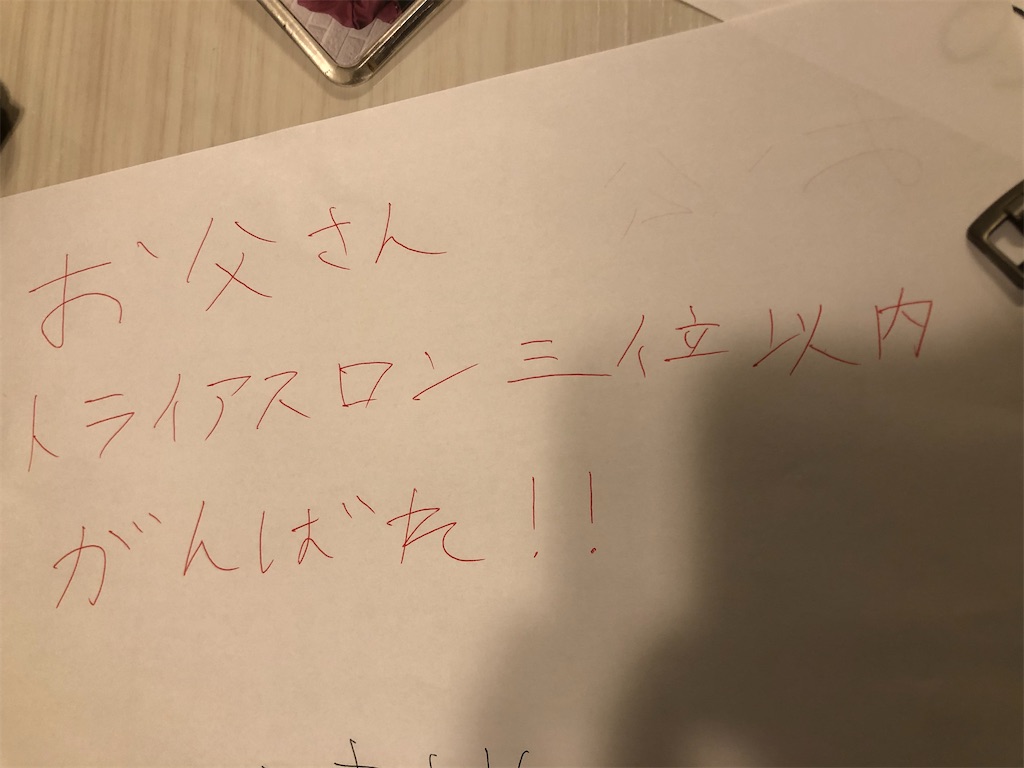 お父さん
トライアスロン三位以内
がんばれ!!